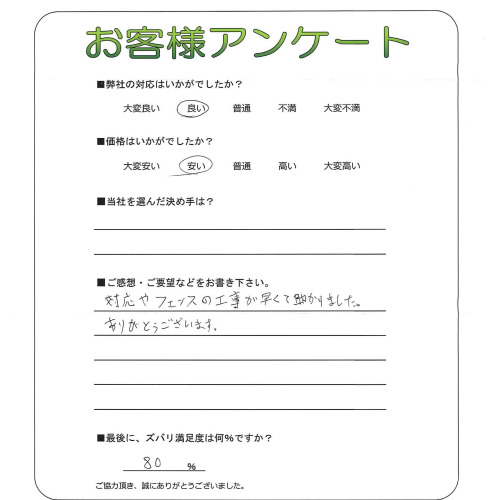 お客様アンケート
■弊社の対応はいかがでしたか？
大変良い 良い 普通 不満 大変不満
■価格はいかがでしたか？
大変安い 安い 普通 高い 大変高い
■当社を選んだ決め手は？
■ご感想・ご要望などをお書き下さい。
対応やフェンスの工事が早くて助かりました。
ありがとうございます。
■最後に、ズバリ満足度は何%ですか？
80 %
ご協力頂き、誠にありがとうございました。